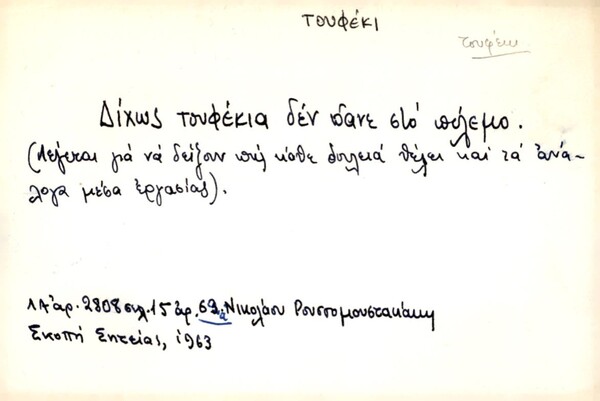 τουφέκι
τουφέκι
Δίχως τουφέκια δέν πάνε στό πόλεμο.
(Λέγεται γιά νά δείξουν πώς κάθε δουλειά θέλει καί τά ἀνά-
λογα μέσα ἐργασίας).
ΛΑ ἀρ. 2808 σελ. 15 ἀρ. 62α Νικολάου Ρουσσομουστακάκη
Σκοπή Σητείας, 1963